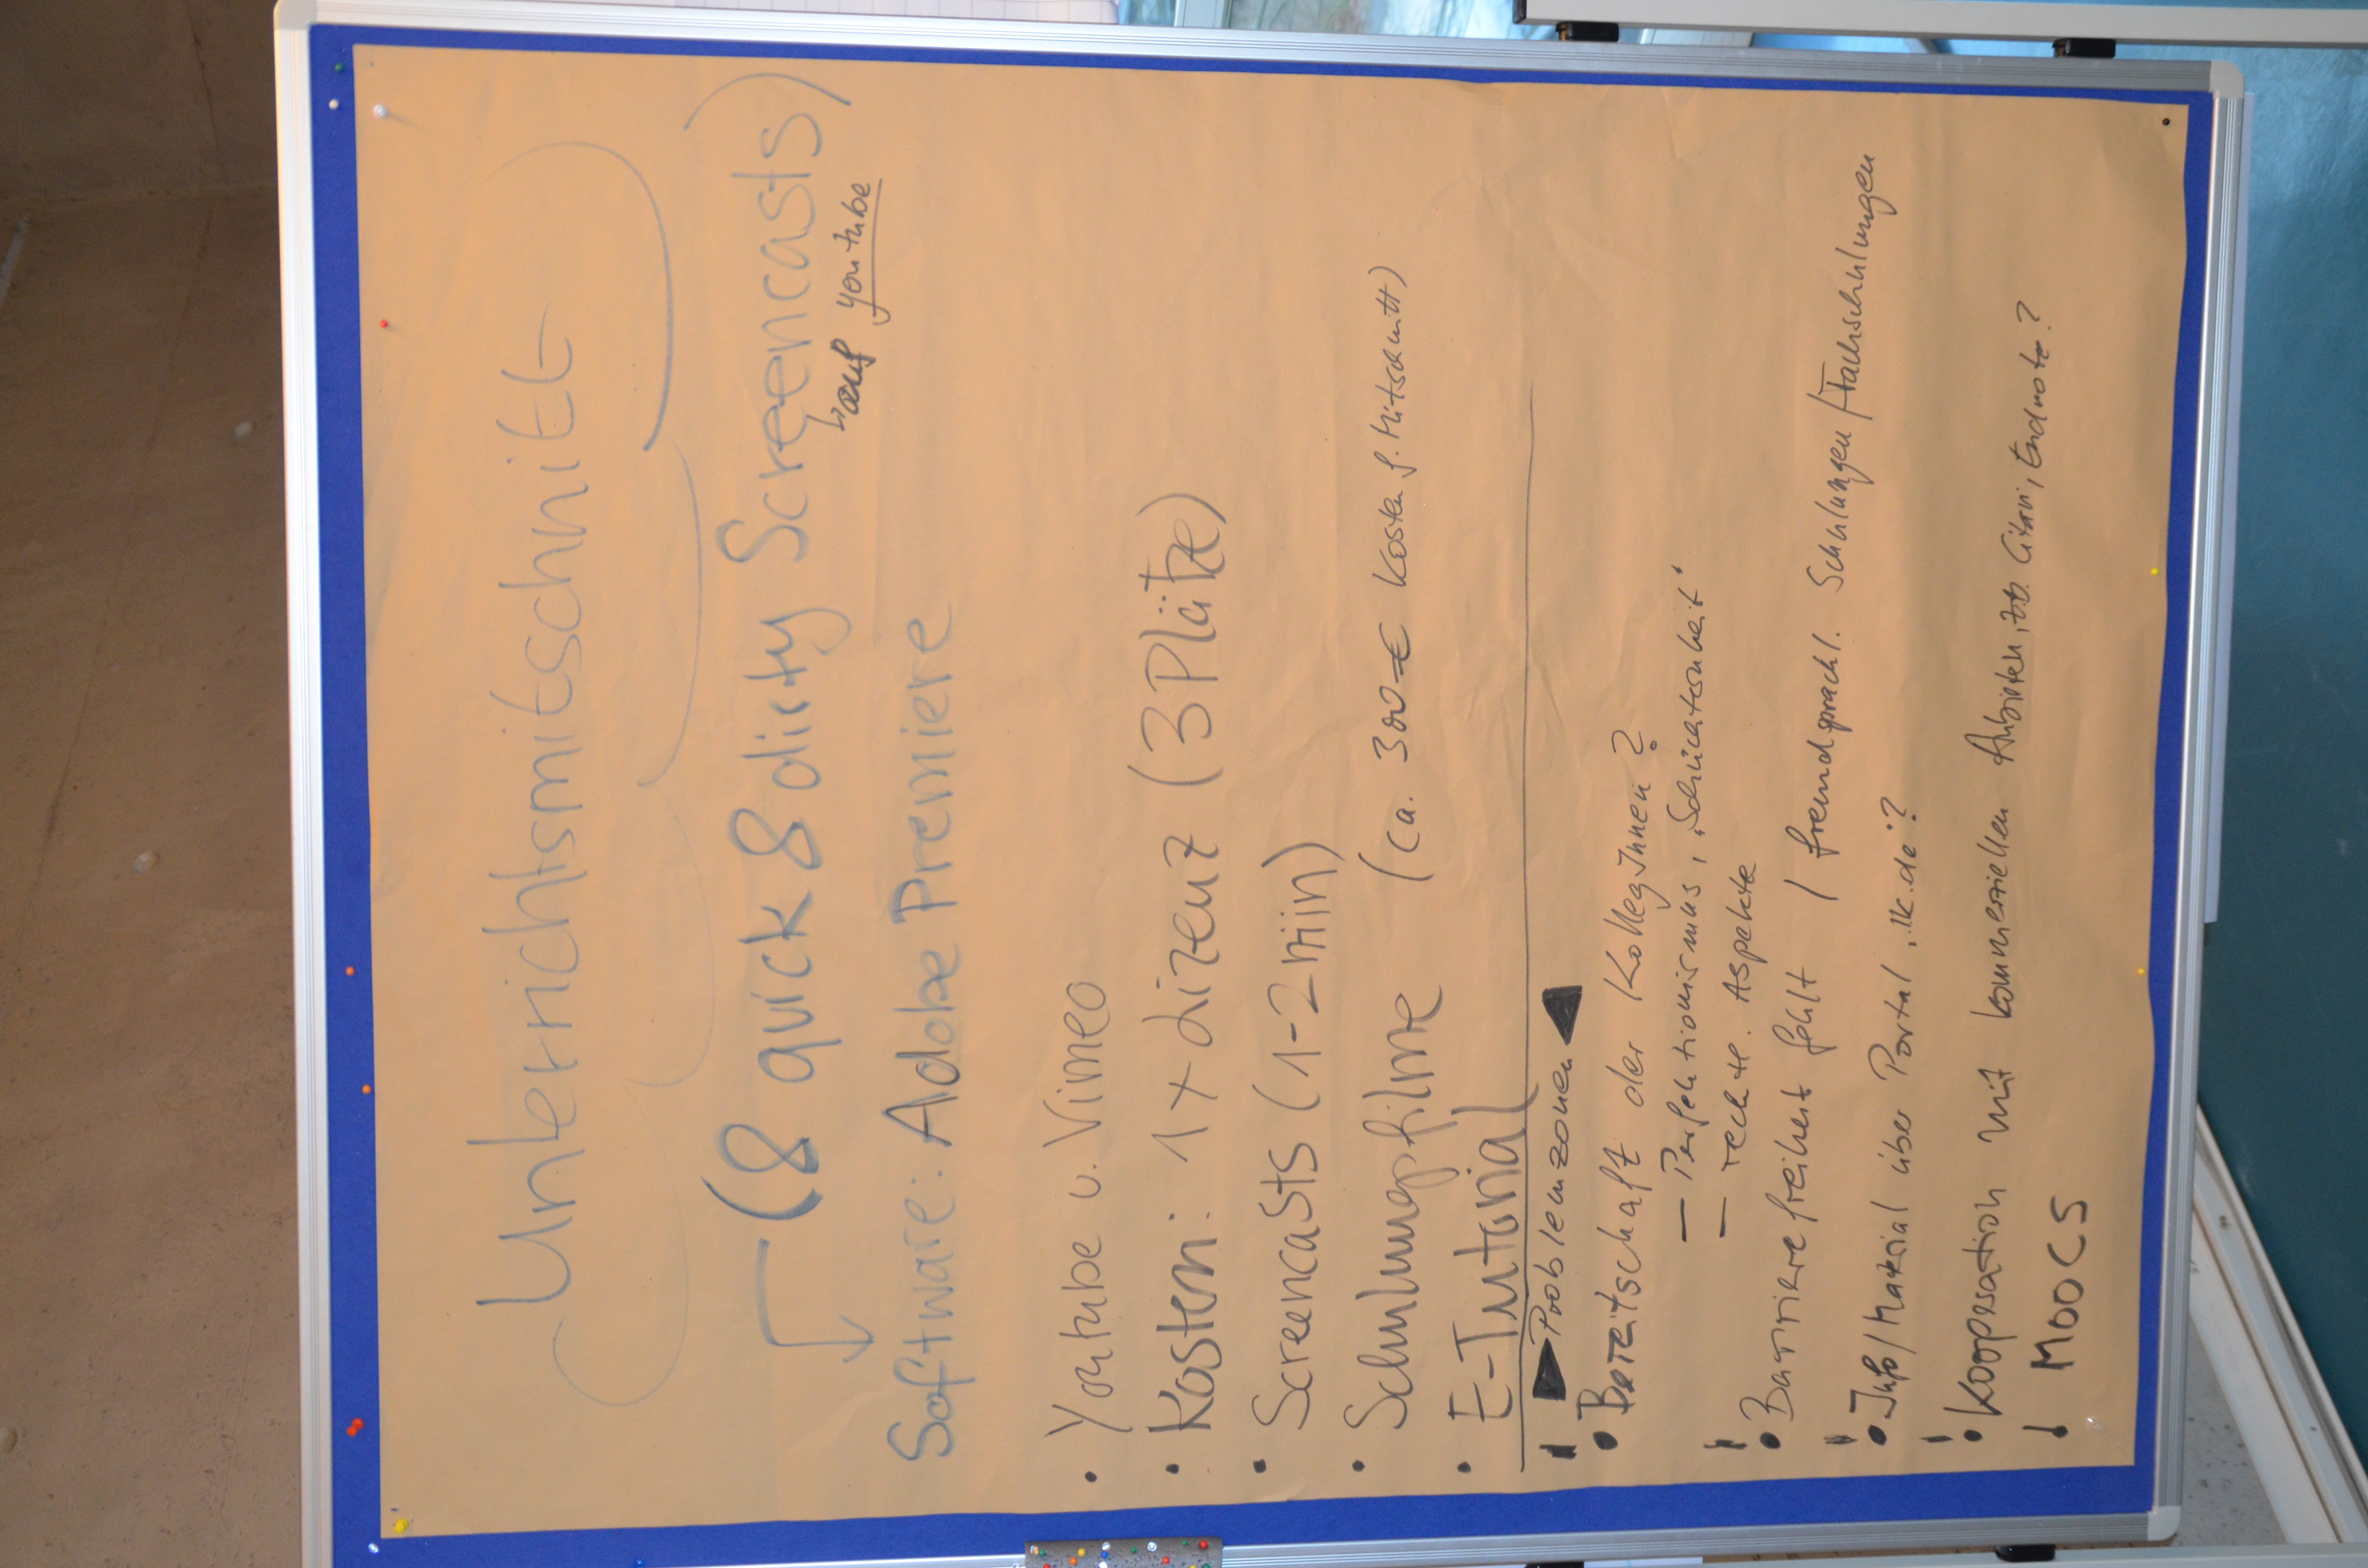 Unterrichtsmitschnitt
(& quick & dirty Screencasts)
↳ auf youtube
Software: Adobe Premiere
• Youtube u. Vimeo
• Kosten: 1x Lizenz (3 Plätze)
• Screencasts (1-2min)
• Schulungsfilme (ca. 300 € Kosten f. Mitschnitt)
• E-Tutorial
! ▶ Problemzonen ◀
• Bereitschaft der KollegInnen?
— Perfektionismus, "Schüchternheit"
— rechtl. Aspekte
! • Barrierefreiheit fehlt / fremdsprachl. Schulungen/Fachschulungen
! • Info/Material über Portal "ik.de"?
! • Kooperation mit kommerziellen Anbietern, zB. Citavi, Endnote?
! MOOCS